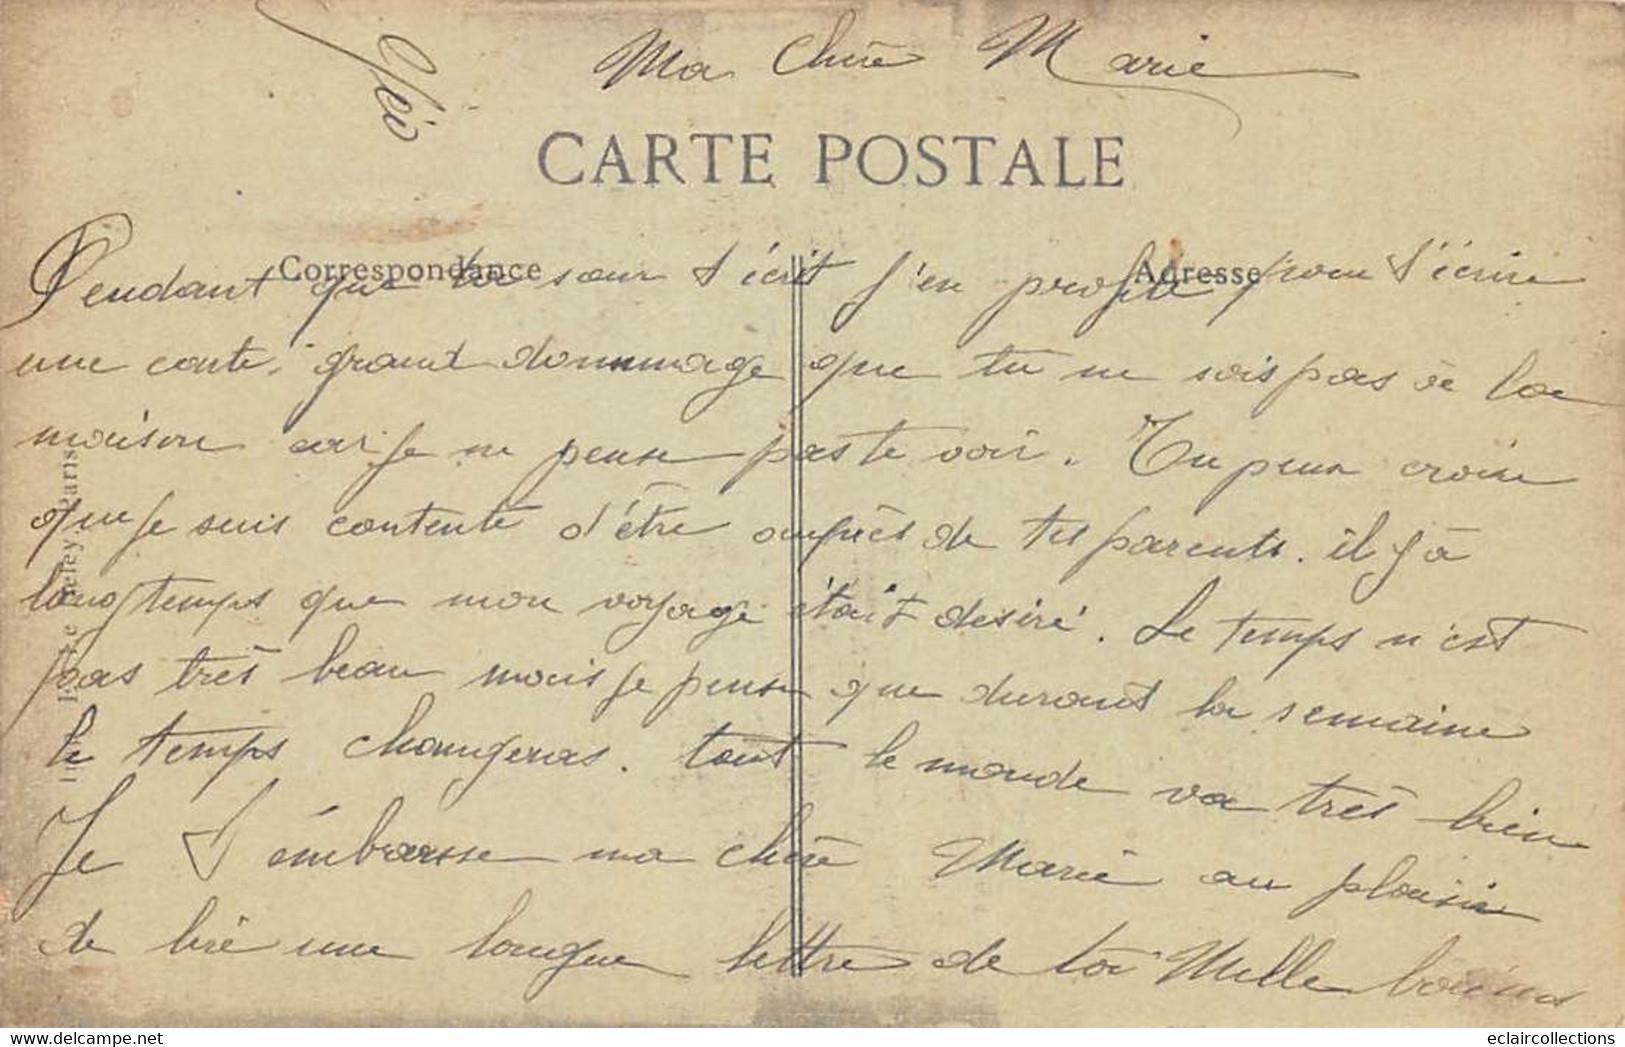 Ma Chère Marie
CARTE POSTALE
Correspondance
Adresse
Pendant que ta sœur t'écrit j'en profite pour t'écrire
une carte. grand dommage que tu ne sois pas à la
maison car je ne pense pas te voir. Tu peux croire
que je suis contente d'être auprès de tes parents. il y à
longtemps que mon voyage était désiré. Le temps n'est
pas très beau mais je pense que durant la semaine
le temps changeras. tout le monde va très bien
Je t'émbrasse ma chère Marie au plaisir
de lire une longue lettre de toi Mille
Paris
www.delcampe.net
eclaircollections